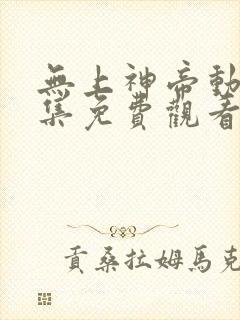 無上神帝動
集免費觀看
貢桑拉姆馬克